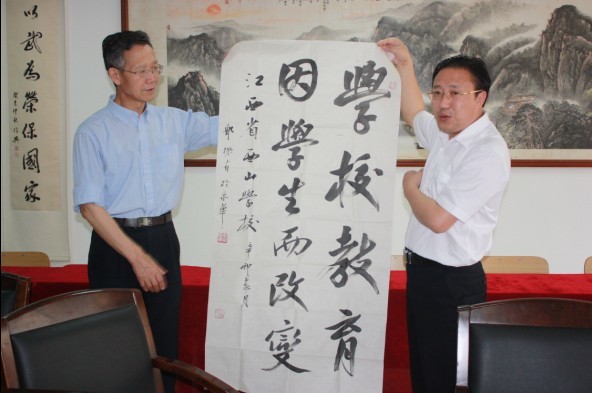 學校教育
因學生而改變
江西省西山學校 辛卯夏月
以武為榮保國家